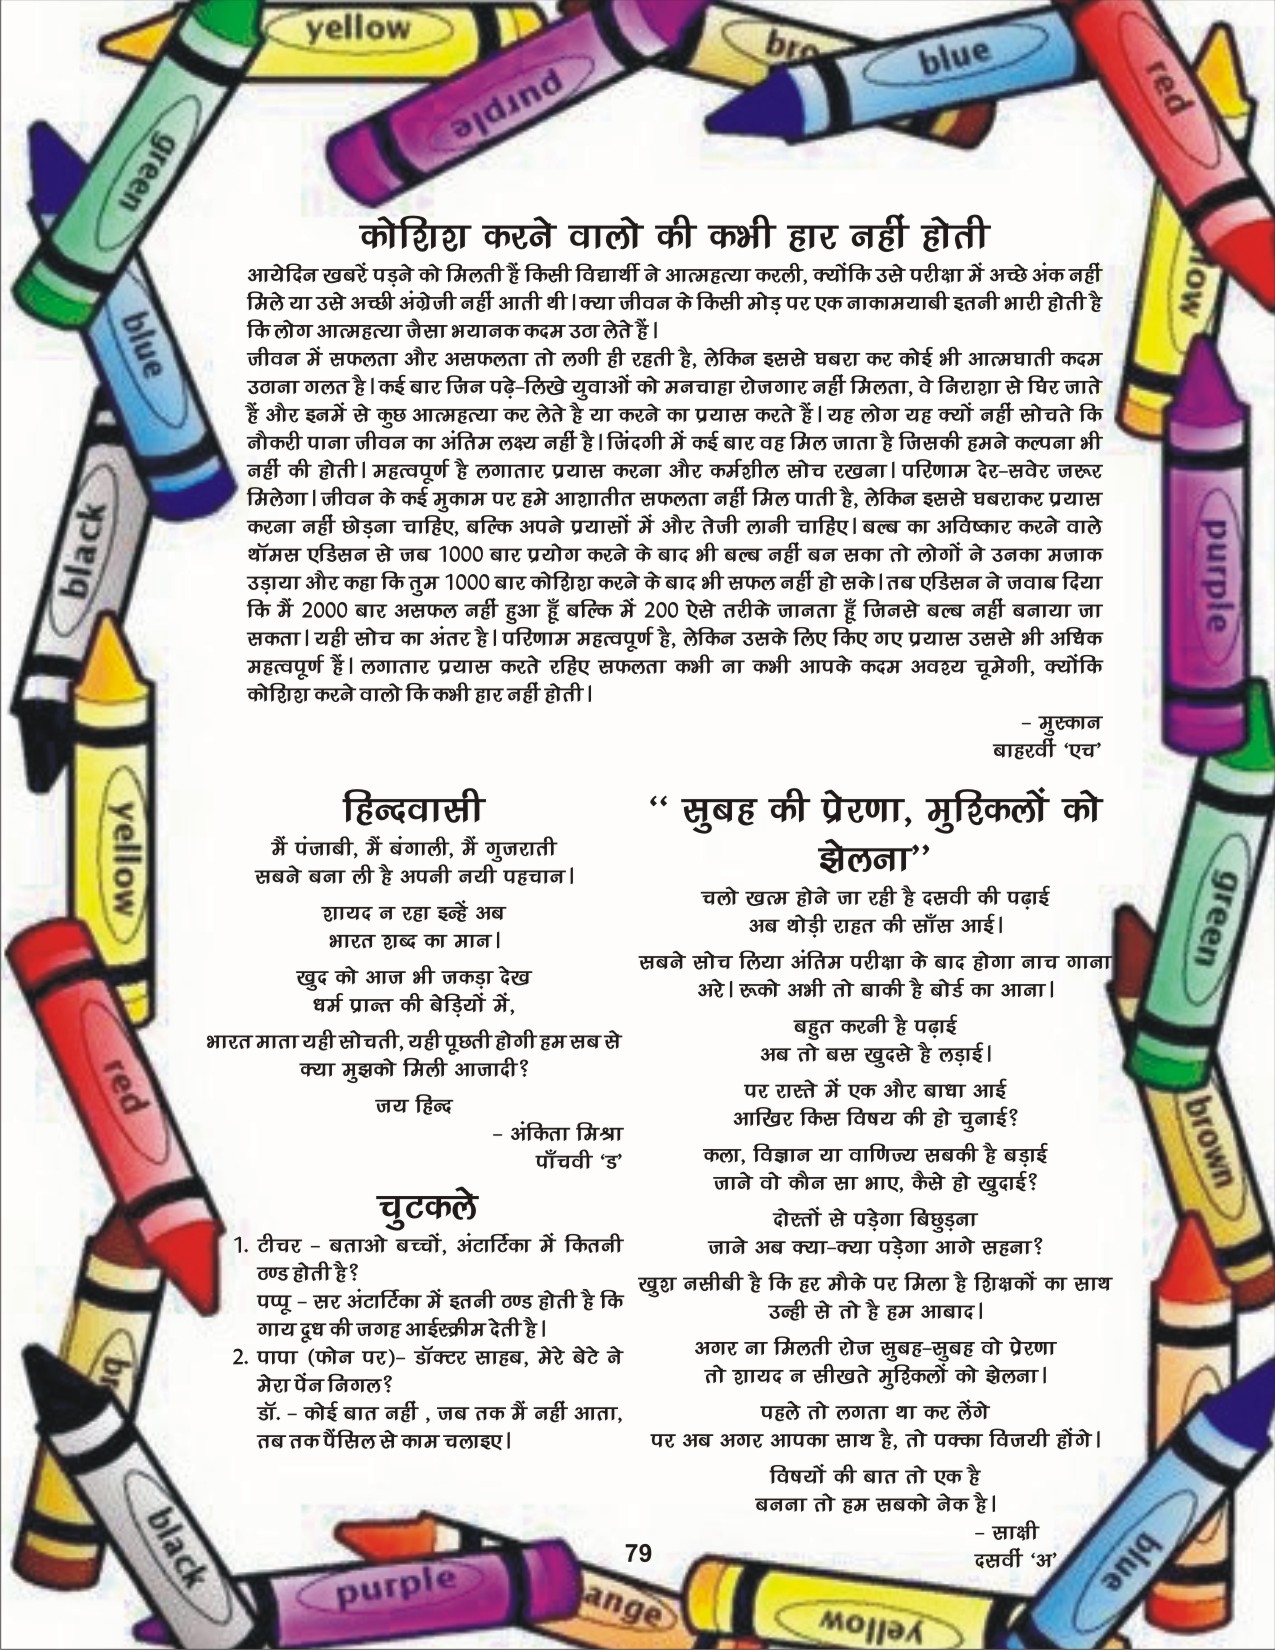 कोशिश करने वालो की कभी हार नहीं होती
आयेदिन खबरें पड़ने को मिलती हैं किसी विद्यार्थी ने आत्महत्या करली, क्योंकि उसे परीक्षा में अच्छे अंक नहीं
मिले या उसे अच्छी अंग्रेजी नहीं आती थी। क्या जीवन के किसी मोड़ पर एक नाकामयाबी इतनी भारी होती है
कि लोग आत्महत्या जैसा भयानक कदम उठा लेते हैं।
जीवन में सफलता और असफलता तो लगी ही रहती है, लेकिन इससे घबरा कर कोई भी आत्मघाती कदम
उठाना गलत है। कई बार जिन पढ़े-लिखे युवाओं को मनचाहा रोजगार नहीं मिलता, वे निराशा से घिर जाते
हैं और इनमें से कुछ आत्महत्या कर लेते है या करने का प्रयास करते हैं। यह लोग यह क्यों नहीं सोचते कि
नौकरी पाना जीवन का अंतिम लक्ष्य नहीं है। जिंदगी में कई बार वह मिल जाता है जिसकी हमने कल्पना भी
नहीं की होती। महत्वपूर्ण है लगातार प्रयास करना और कर्मशील सोच रखना। परिणाम देर-सवेर जरूर
मिलेगा। जीवन के कई मुकाम पर हमे आशातीत सफलता नहीं मिल पाती है, लेकिन इससे घबराकर प्रयास
करना नहीं छोड़ना चाहिए, बल्कि अपने प्रयासों में और तेजी लानी चाहिए। बल्ब का अविष्कार करने वाले
थॉमस एडिसन से जब 1000 बार प्रयोग करने के बाद भी बल्ब नहीं बन सका तो लोगों ने उनका मजाक
उड़ाया और कहा कि तुम 1000 बार कोशिश करने के बाद भी सफल नहीं हो सके। तब एडिसन ने जवाब दिया
कि मैं 2000 बार असफल नहीं हुआ हूँ बल्कि में 200 ऐसे तरीके जानता हूँ जिनसे बल्ब नहीं बनाया जा
सकता। यही सोच का अंतर है। परिणाम महत्वपूर्ण है, लेकिन उसके लिए किए गए प्रयास उससे भी अधिक
महत्वपूर्ण हैं। लगातार प्रयास करते रहिए सफलता कभी ना कभी आपके कदम अवश्य चूमेगी, क्योंकि
कोशिश करने वालो कि कभी हार नहीं होती।
- मुस्कान
बाहरवीं ‘एच’
हिन्दवासी
मैं पंजाबी, मैं बंगाली, मैं गुजराती
सबने बना ली है अपनी नयी पहचान।
शायद न रहा इन्हें अब
भारत शब्द का मान।
खुद को आज भी जकड़ा देख
धर्म प्रान्त की बेड़ियों में,
भारत माता यही सोचती, यही पूछती होगी हम सब से
क्या मुझको मिली आजादी?
जय हिन्द
- अंकिता मिश्रा
पाँचवी ‘ड’
चुटकले
1. टीचर - बताओ बच्चों, अंटार्टिका में कितनी
ठण्ड होती है?
पप्पू - सर अंटार्टिका में इतनी ठण्ड होती है कि
गाय दूध की जगह आईस्क्रीम देती है।
2. पापा (फोन पर)- डॉक्टर साहब, मेरे बेटे ने
मेरा पेंन निगल?
डॉ. - कोई बात नहीं , जब तक मैं नहीं आता,
तब तक पैंसिल से काम चलाइए।
“ सुबह की प्रेरणा, मुश्किलों को
झेलना”
चलो खत्म होने जा रही है दसवी की पढ़ाई
अब थोड़ी राहत की साँस आई।
सबने सोच लिया अंतिम परीक्षा के बाद होगा नाच गाना
अरे। रूको अभी तो बाकी है बोर्ड का आना।
बहुत करनी है पढ़ाई
अब तो बस खुदसे है लड़ाई।
पर रास्ते में एक और बाधा आई
आखिर किस विषय की हो चुनाई?
कला, विज्ञान या वाणिज्य सबकी है बड़ाई
जाने वो कौन सा भाए, कैसे हो खुदाई?
दोस्तों से पड़ेगा बिछुड़ना
जाने अब क्या-क्या पड़ेगा आगे सहना?
खुश नसीबी है कि हर मौके पर मिला है शिक्षकों का साथ
उन्ही से तो है हम आबाद।
अगर ना मिलती रोज सुबह-सुबह वो प्रेरणा
तो शायद न सीखते मुश्किलों को झेलना।
पहले तो लगता था कर लेंगे
पर अब अगर आपका साथ है, तो पक्का विजयी होंगे।
विषयों की बात तो एक है
बनना तो हम सबको नेक है।
- साक्षी
दसवीं ‘अ’
79
yellow
purple
bro
blue
red
yellow
purple
green
brown
blue
yellow
ange
purple
black
br
red
yellow
black
blue
green